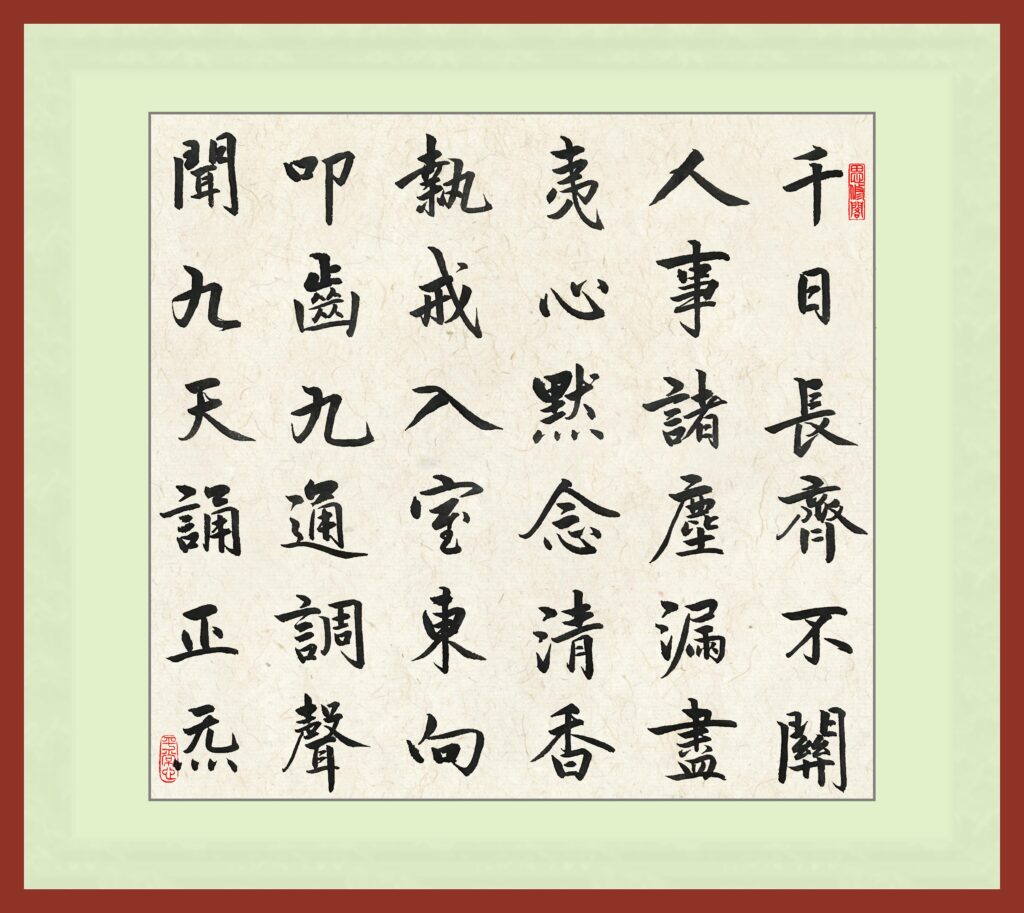 思修閣
千日長齊不關
人事諸塵漏盡
夷心默念清香
執戒入室東向
叩齒九通調聲
聞九天誦正炁
平常心